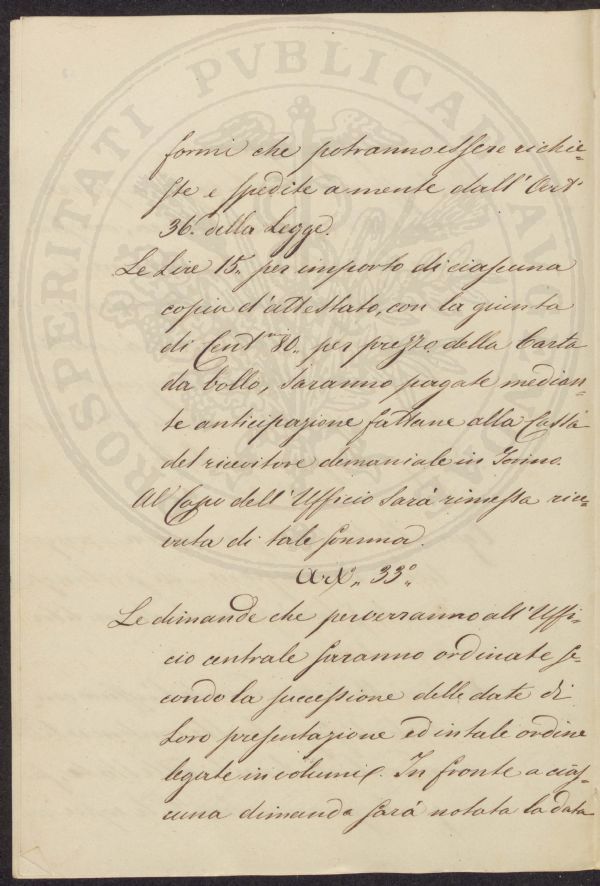 formi che potranno essere richie=
ste e spedite a mente dall' Art.
36. della Legge.
Le Lire 15. per importo di ciascuna
copia d'attestato, con la giunta
di Cent.mi 80. per prezzo della Carta
da bollo, saranno pagate median=
te anticipazione fattane alla Cassa
del ricevitore demaniale in Torino.
Al Capo dell' Ufficio sarà rimessa rice=
vuta di tale somma.
Art. 33.°
Le dimande che perverranno all' Uffi=
cio centrale saranno ordinate se=
condo la successione delle date di
loro presentazione ed in tale ordine
legate in volumi. In fronte a cias=
cuna dimanda sarà notata la data
PROSPERITATI PVBLICAE AVGENDAE